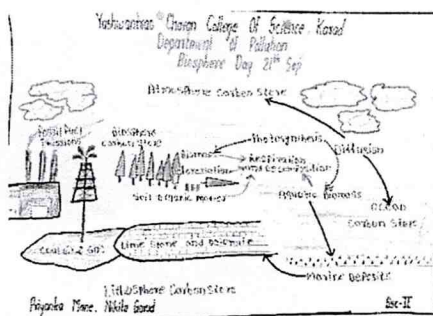 Yashwantrao Chavan College Of Science, Karad
Department of Pollution
Biosphere Day 21th Sep
Atmosphere Carbon Store
Fossil Fuel
Emissions
Biosphere
Carbon Store
Photosynthesis
Diffusion
Biomass
Respiration
and Decomposition
Soil Organic
Aquatic Biomass
Ocean
Carbon Store
Lime Stone and Dolomite
Marine Deposits
Lithosphere Carbon Store
Priyanka Mane, Nikita
Bsc-II